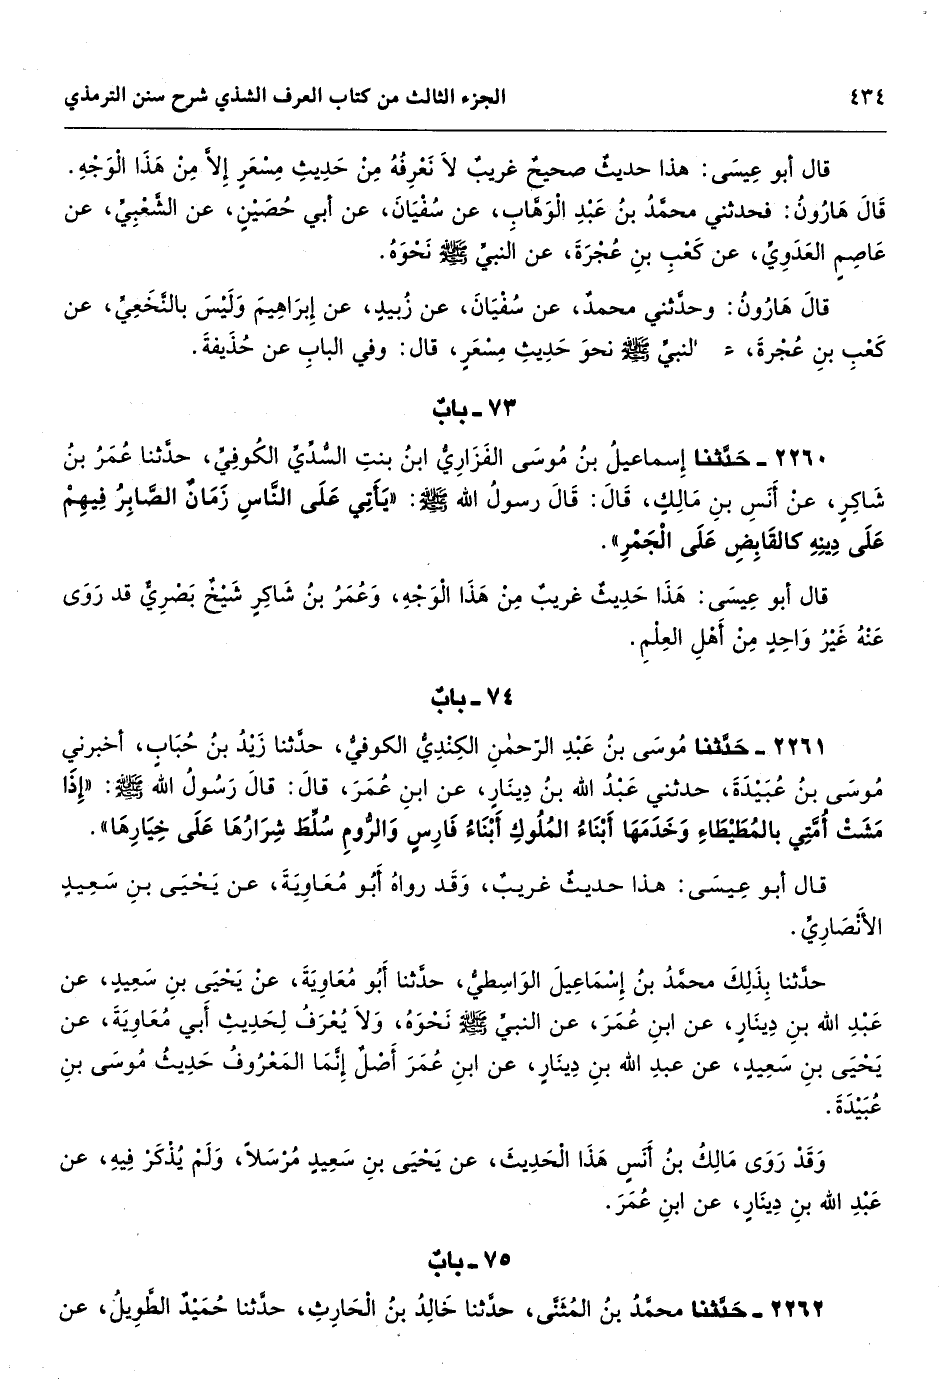 ٤٣٤ الجزء الثالث من كتاب العرف الشذي شرح سنن الترمذي
قال أبو عِيسَى: هذا حديثٌ صحيحٌ غريبٌ لاَ نَعْرِفُهُ مِنْ حَدِيثِ مِسْعَرٍ إلاَّ مِنْ هَذَا الْوَجْهِ.
قَالَ هَارُونُ: فحدثني محمَّدُ بنُ عَبْدِ الْوَهَّابِ، عن سُفْيَانَ، عن أبي حُصَيْنٍ، عن الشَّعْبِيِّ، عن
عَاصِمٍ العَدَوِيِّ، عن كَعْبِ بنِ عُجْرَةَ، عن النبيِّ ﷺ نَحْوَهُ.
قالَ هَارُونُ: وحدَّثني محمدٌ، عن سُفْيَانَ، عن زُبيدٍ، عن إبرَاهِيمَ وَلَيْسَ بالنَّخَعِيِّ، عن
كَعْبِ بنِ عُجْرةَ، النبيِّ ﷺ نحوَ حَدِيثِ مِسْعَرٍ، قال: وفي البابِ عن حُذَيفةَ.
٧٣ ـ بابٌ
٢٢٦٠ ـ حَدَّثنا إسماعيلُ بنُ مُوسَى الفَزَارِيُّ ابنُ بنتِ السُّدِّيِّ الكوفِيِّ، حدَّثنا عُمَرُ بنُ
شَاكِرٍ، عنْ أَنَسِ بنِ مَالِكٍ، قَالَ: قَالَ رسولُ الله ﷺ: «يَأتِي عَلَى النَّاسِ زَمَانٌ الصَّابِرُ فِيهِمْ
عَلَى دِينِهِ كالقَابِضِ عَلَى الْجَمْرِ».
قال أبو عِيسَى: هَذَا حَدِيثٌ غريبٌ مِنْ هَذَا الْوَجْهِ، وَعُمَرُ بنُ شَاكِرٍ شَيْخٌ بَصْرِيٌّ قد رَوَى
عَنْهُ غَيْرُ وَاحِدٍ مِنْ أَهْلِ العِلْمِ.
٧٤ ـ بابٌ
٢٢٦١ ـ حَدَّثنا مُوسَى بنُ عَبْدِ الرّحمٰنِ الكِنْدِيُّ الكوفيُّ، حدَّثنا زَيْدُ بنُ حُبَابٍ، أخبرني
مُوسَى بنُ عُبَيْدَةَ، حدثني عَبْدُ الله بنُ دِينَارٍ، عن ابنِ عُمَرَ، قالَ: قالَ رَسُولُ الله ﷺ: «إذَا
مَشَتْ أُمَّتِي بالمُطَيْطَاءِ وَخَدَمَهَا أَبْنَاءُ المُلُوكِ أَبْنَاءُ فَارِسَ وَالرُّومِ سُلِّطَ شِرَارُهَا عَلَى خِيَارِهَا».
قال أبو عِيسَى: هذا حديثٌ غريبٌ، وَقَد رواهُ أَبُو مُعَاوِيَةَ، عن يَحْيَى بنِ سَعِيدٍ
الأنْصَارِيِّ.
حدَّثنا بِذَلِكَ محمَّدُ بنُ إسْمَاعيلَ الوَاسِطيُّ، حدَّثنا أَبُو مُعَاوِيَةَ، عنْ يَحْيَى بنِ سَعِيدٍ، عن
عَبْدِ الله بنِ دِينَارٍ، عن ابنِ عُمَرَ، عن النبيِّ ﷺ نَحْوَهُ، وَلاَ يُعْرَفُ لِحَدِيثِ أبي مُعَاوِيَةَ، عن
يَحْيَى بنِ سَعِيدٍ، عن عبدِ الله بنِ دِينَارٍ، عن ابنِ عُمَرَ أَصْلٌ إنَّمَا المَعْرُوفُ حَدِيثُ مُوسَى بنِ
عُبَيْدَةَ.
وَقَدْ رَوَى مَالِكُ بنُ أَنَسٍ هَذَا الْحَدِيثَ، عن يَحْيَى بنِ سَعِيدٍ مُرْسَلاً، وَلَمْ يُذْكَرْ فِيهِ، عن
عَبْدِ الله بنِ دِينَارٍ، عن ابنِ عُمَرَ.
٧٥ ـ بابٌ
٢٢٦٢ ـ حَدَّثنا محمَّدُ بنُ المُثَنَّى، حدَّثنا خَالِدُ بنُ الْحَارِثِ، حدَّثنا حُمَيْدٌ الطَّوِيلُ، عن